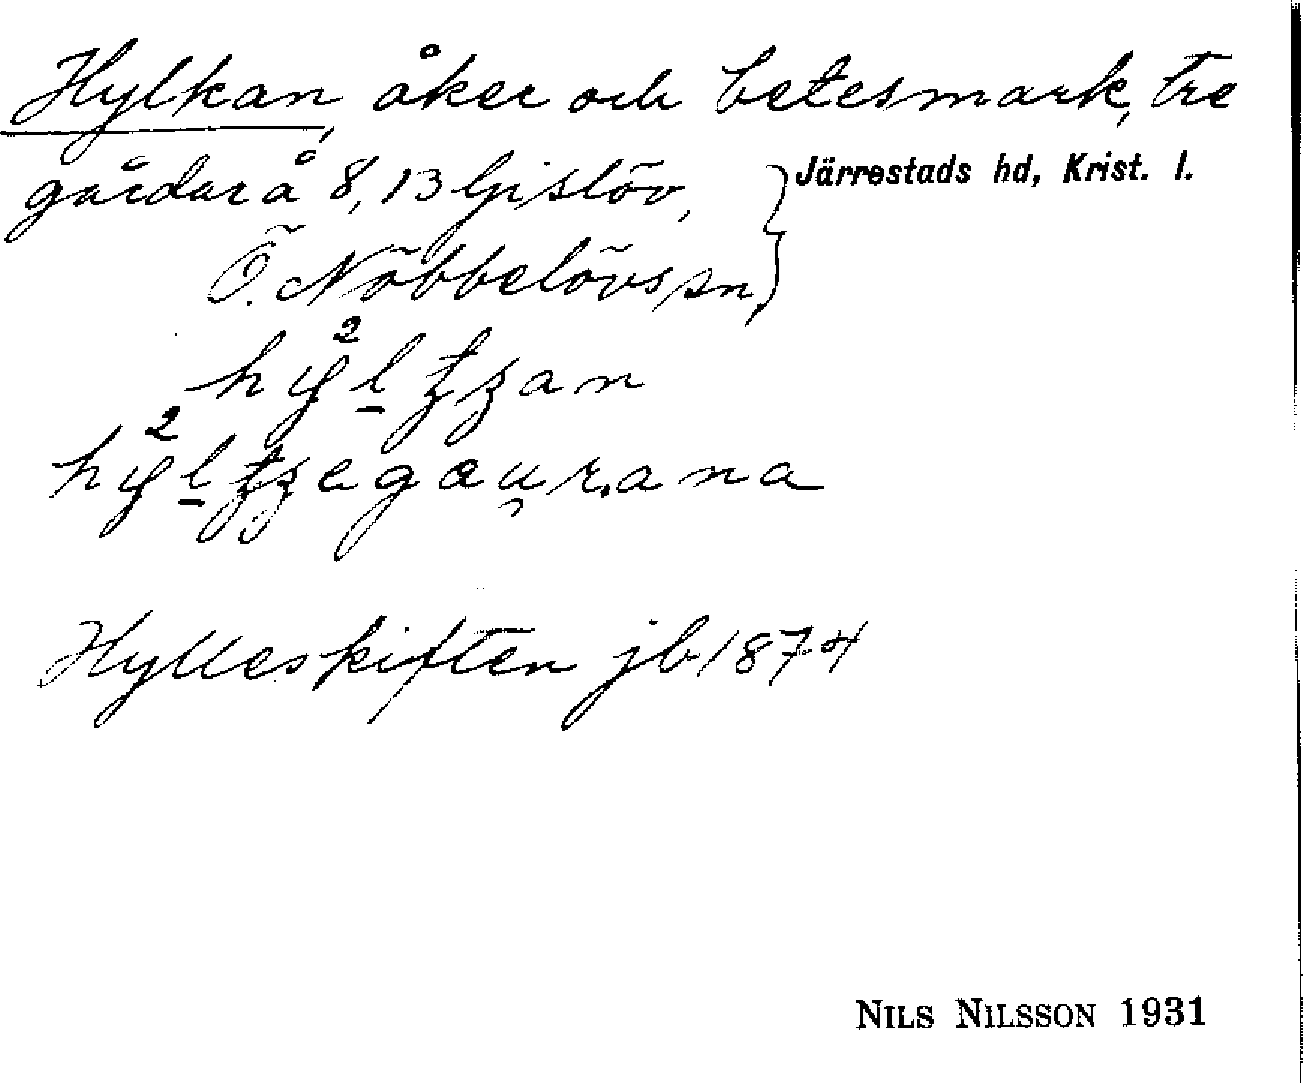 Hylkan, åker och betesmark, tre
gårdar å 8, 13 Gislöv, } Järrestads hd, Krist. l.
Ö. Nöbbelövs sn,
Hylleskiften jb 1874
NILS NILSSON 1931